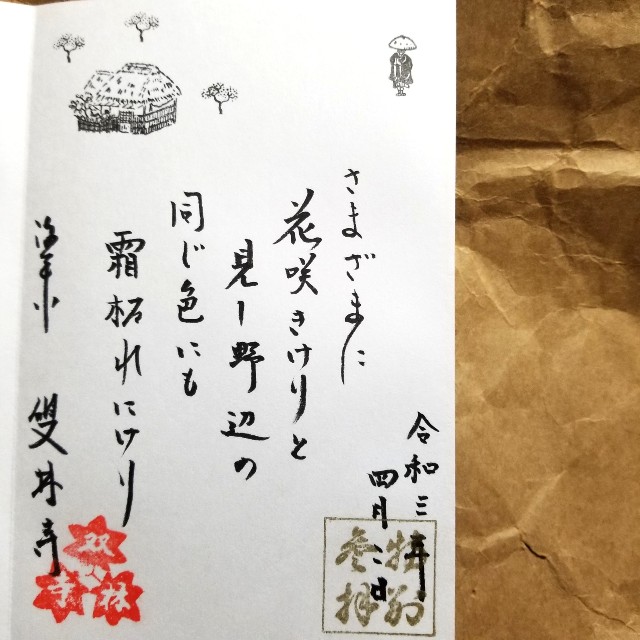 令和三年
四月二日
特別
参拝
さまざまに
花咲きけりと
見し野辺の
同じ色にも
霜枯れにけり
雙林寺
双林寺